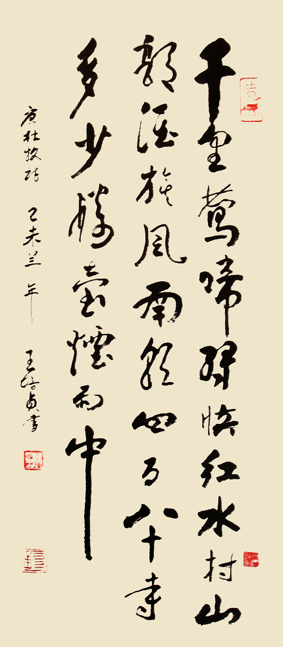 千里鶯啼綠映红水村山
郭酒旗風南朝四百八十寺
多少樓臺煙雨中
唐杜牧诗 乙未羊年 王培貞書